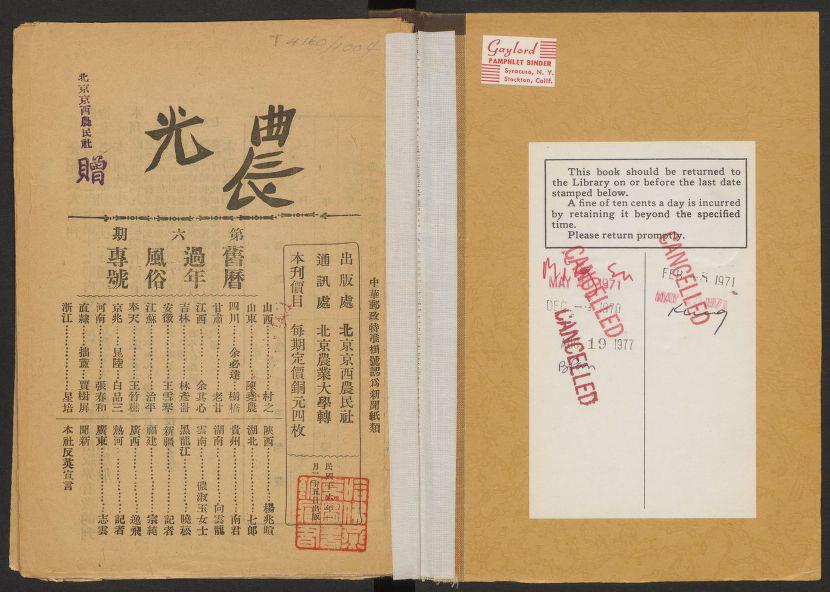 T 4160/1004
北京京西農民社
贈
農光
第六期
舊曆過年風俗專號
中華郵政特准掛號認爲新聞紙類
出版處 北京京西農民社
通訊處 北京農業大學轉
本刊價目 每期定價銅元四枚
山西 村之
山東 陳堯農
四川 余必達 樹橋
甘肅 老甘
江西 余其心
吉林 林產器
安徽 王雪琴
江蘇 治平
奉天 王竹樵
京兆 昆陸 白品三
河南 張春和
直隸 描董 賈樹屏
浙江 星培
陝西 楊兆暄
湖北 七郎
貴州 南君
湖南 向雲龍
雲南 儂淑玉女士
黑龍江 曉松
新疆 記者
福建 宗純
廣西 逸飛
熱河 記者
廣東 志雲
聞新
本社反英宣言
Gaylord
PAMPHLET BINDER
Syracuse, N. Y.
Stockton, Calif.
This book should be returned to
the Library on or before the last date
stamped below.
A fine of ten cents a day is incurred
by retaining it beyond the specified
time.
Please return promptly.
CANCELLED
MAY 1971
DEC 1970
CANCELLED
19 1977
FEB 8 1971
CANCELLED
MAY 1971